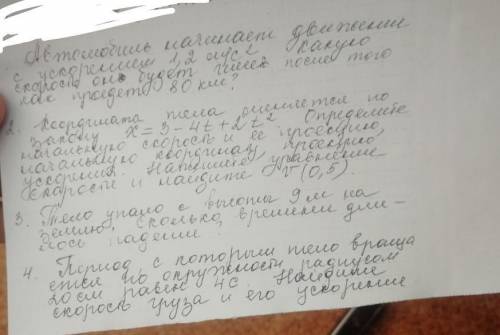 Автомобиль начинает движение
с ускорением 1,2 м/с² какую
скорость он будет иметь после того
как пройдет 80 км?
2. Координата тела меняется по
закону x = 3 - 4t + 2t². Определите
начальную скорость и ее проекцию,
начальную координату, проекцию
ускорения. Напишите уравнение
скорости и найдите v(0,5).
3. Тело упало с высоты 9 м на
землю, сколько времени дли-
лось падение
4. Период с которым тело враща
ется по окружности радиусом
20 см равен 4с. Найдите
скорость груза и его ускорение